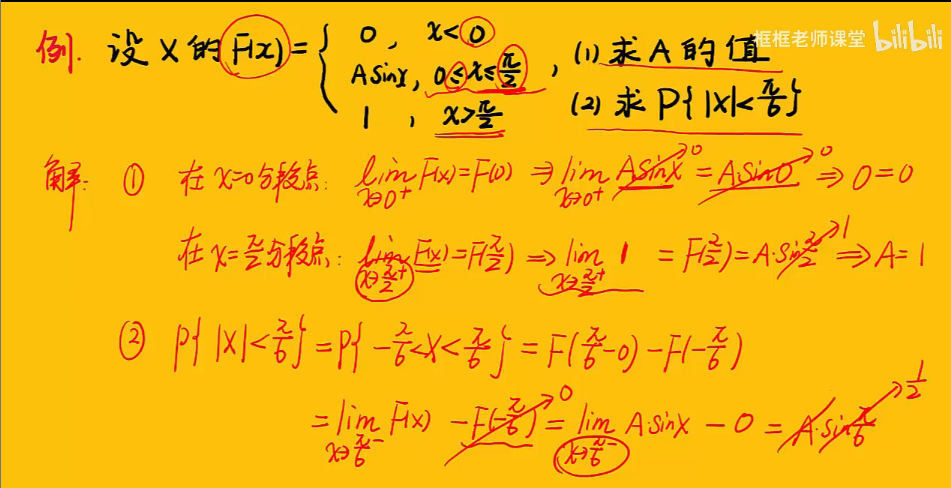 框框老师课堂 bilibili
例. 设 X 的 F(x) = { 0, x<0
Asinx, 0≤x≤π/2, (1) 求 A 的值
1, x>π/2 (2) 求 P{|X|<π/6}
解: ① 在 x=0 分段点: lim x→0⁺ F(x)=F(0) ⇒ lim x→0⁺ Asinx = A·sin0 ⇒ 0=0
0 0
在 x=π/2 分段点: lim x→π/2⁺ F(x)=F(π/2) ⇒ lim x→π/2⁺ 1 = F(π/2)=A·sinπ/2 ⇒ A=1
1
② P{|X|<π/6} = P{-π/6<X<π/6} = F(π/6-0) - F(-π/6)
= lim x→π/6⁻ F(x) - F(-π/6) = lim x→π/6⁻ A·sinx - 0 = A·sinπ/6
0 1/2